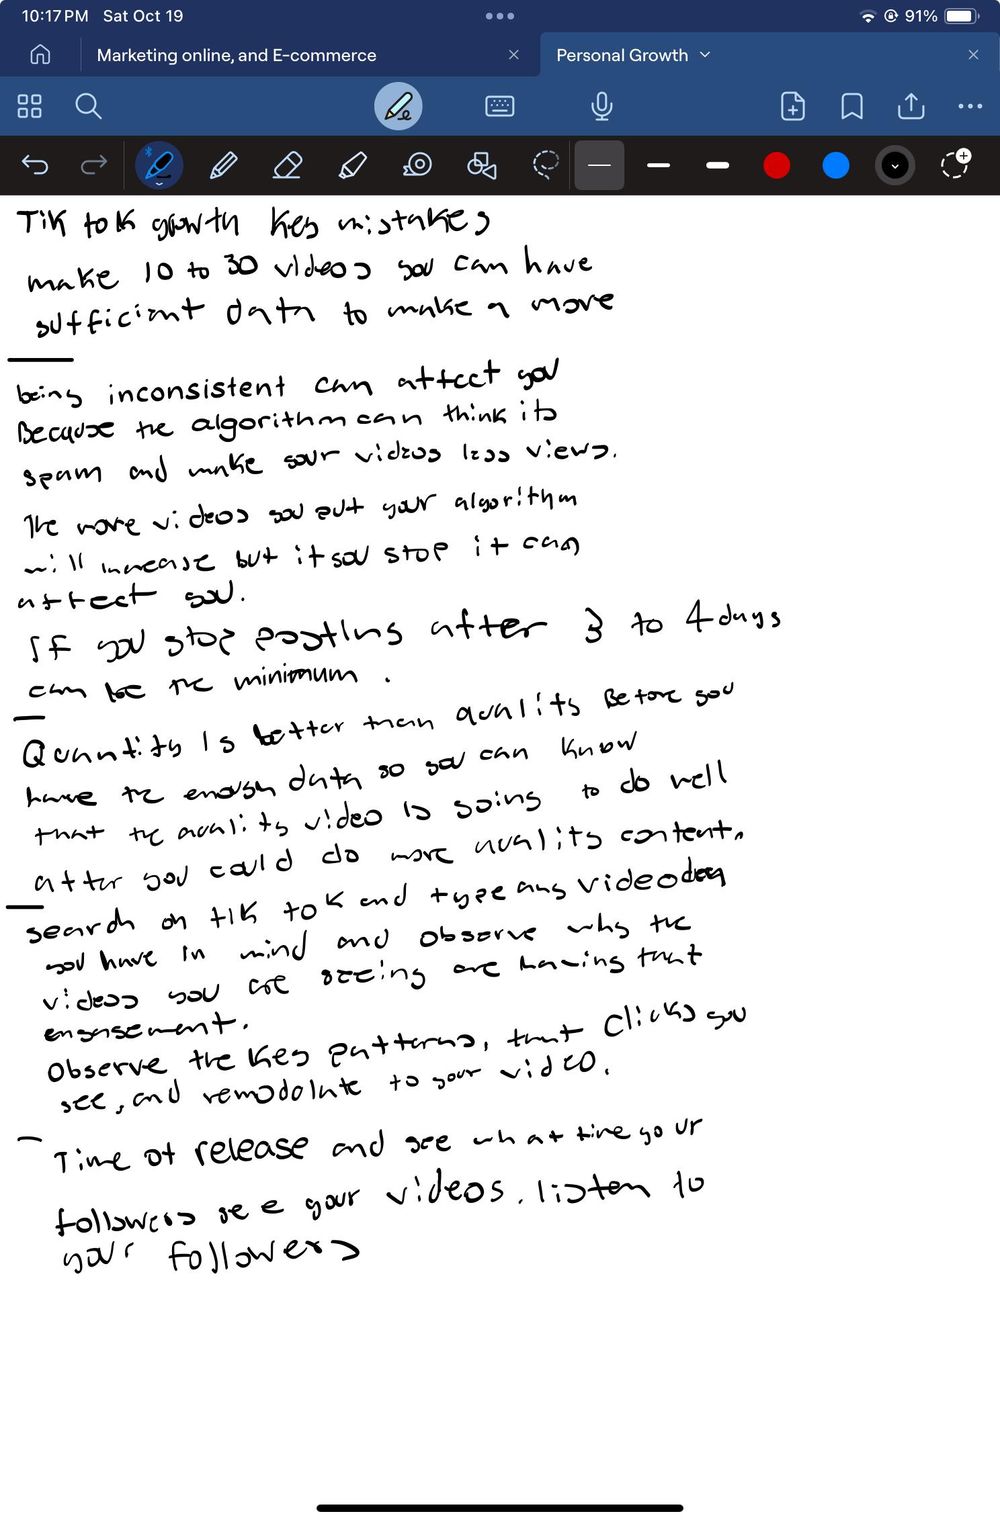 10:17 PM Sat Oct 19
91%
Marketing online, and E-commerce
Personal Growth
Tik tok growth key mistakes
make 10 to 30 videos you can have
sufficient data to make a more
being inconsistent can affect you
Because the algorithm can think its
spam and make your videos less views.
The more videos you put your algorithm
will increase but if you stop it can
affect you.
If you stop posting after 3 to 4 days
can be the minimum.
Quantity is better than quality Before you
have the enough data so you can know
that the quality video is going to do well
after you could do more quality content.
search on tik tok and type any video
you have in mind and observe why the
videos you are seeing are having that
engagement.
observe the key patterns, that clicks you
see, and remodolate to your video.
Time of release and see what time your
followers see your videos. listen to
your followers